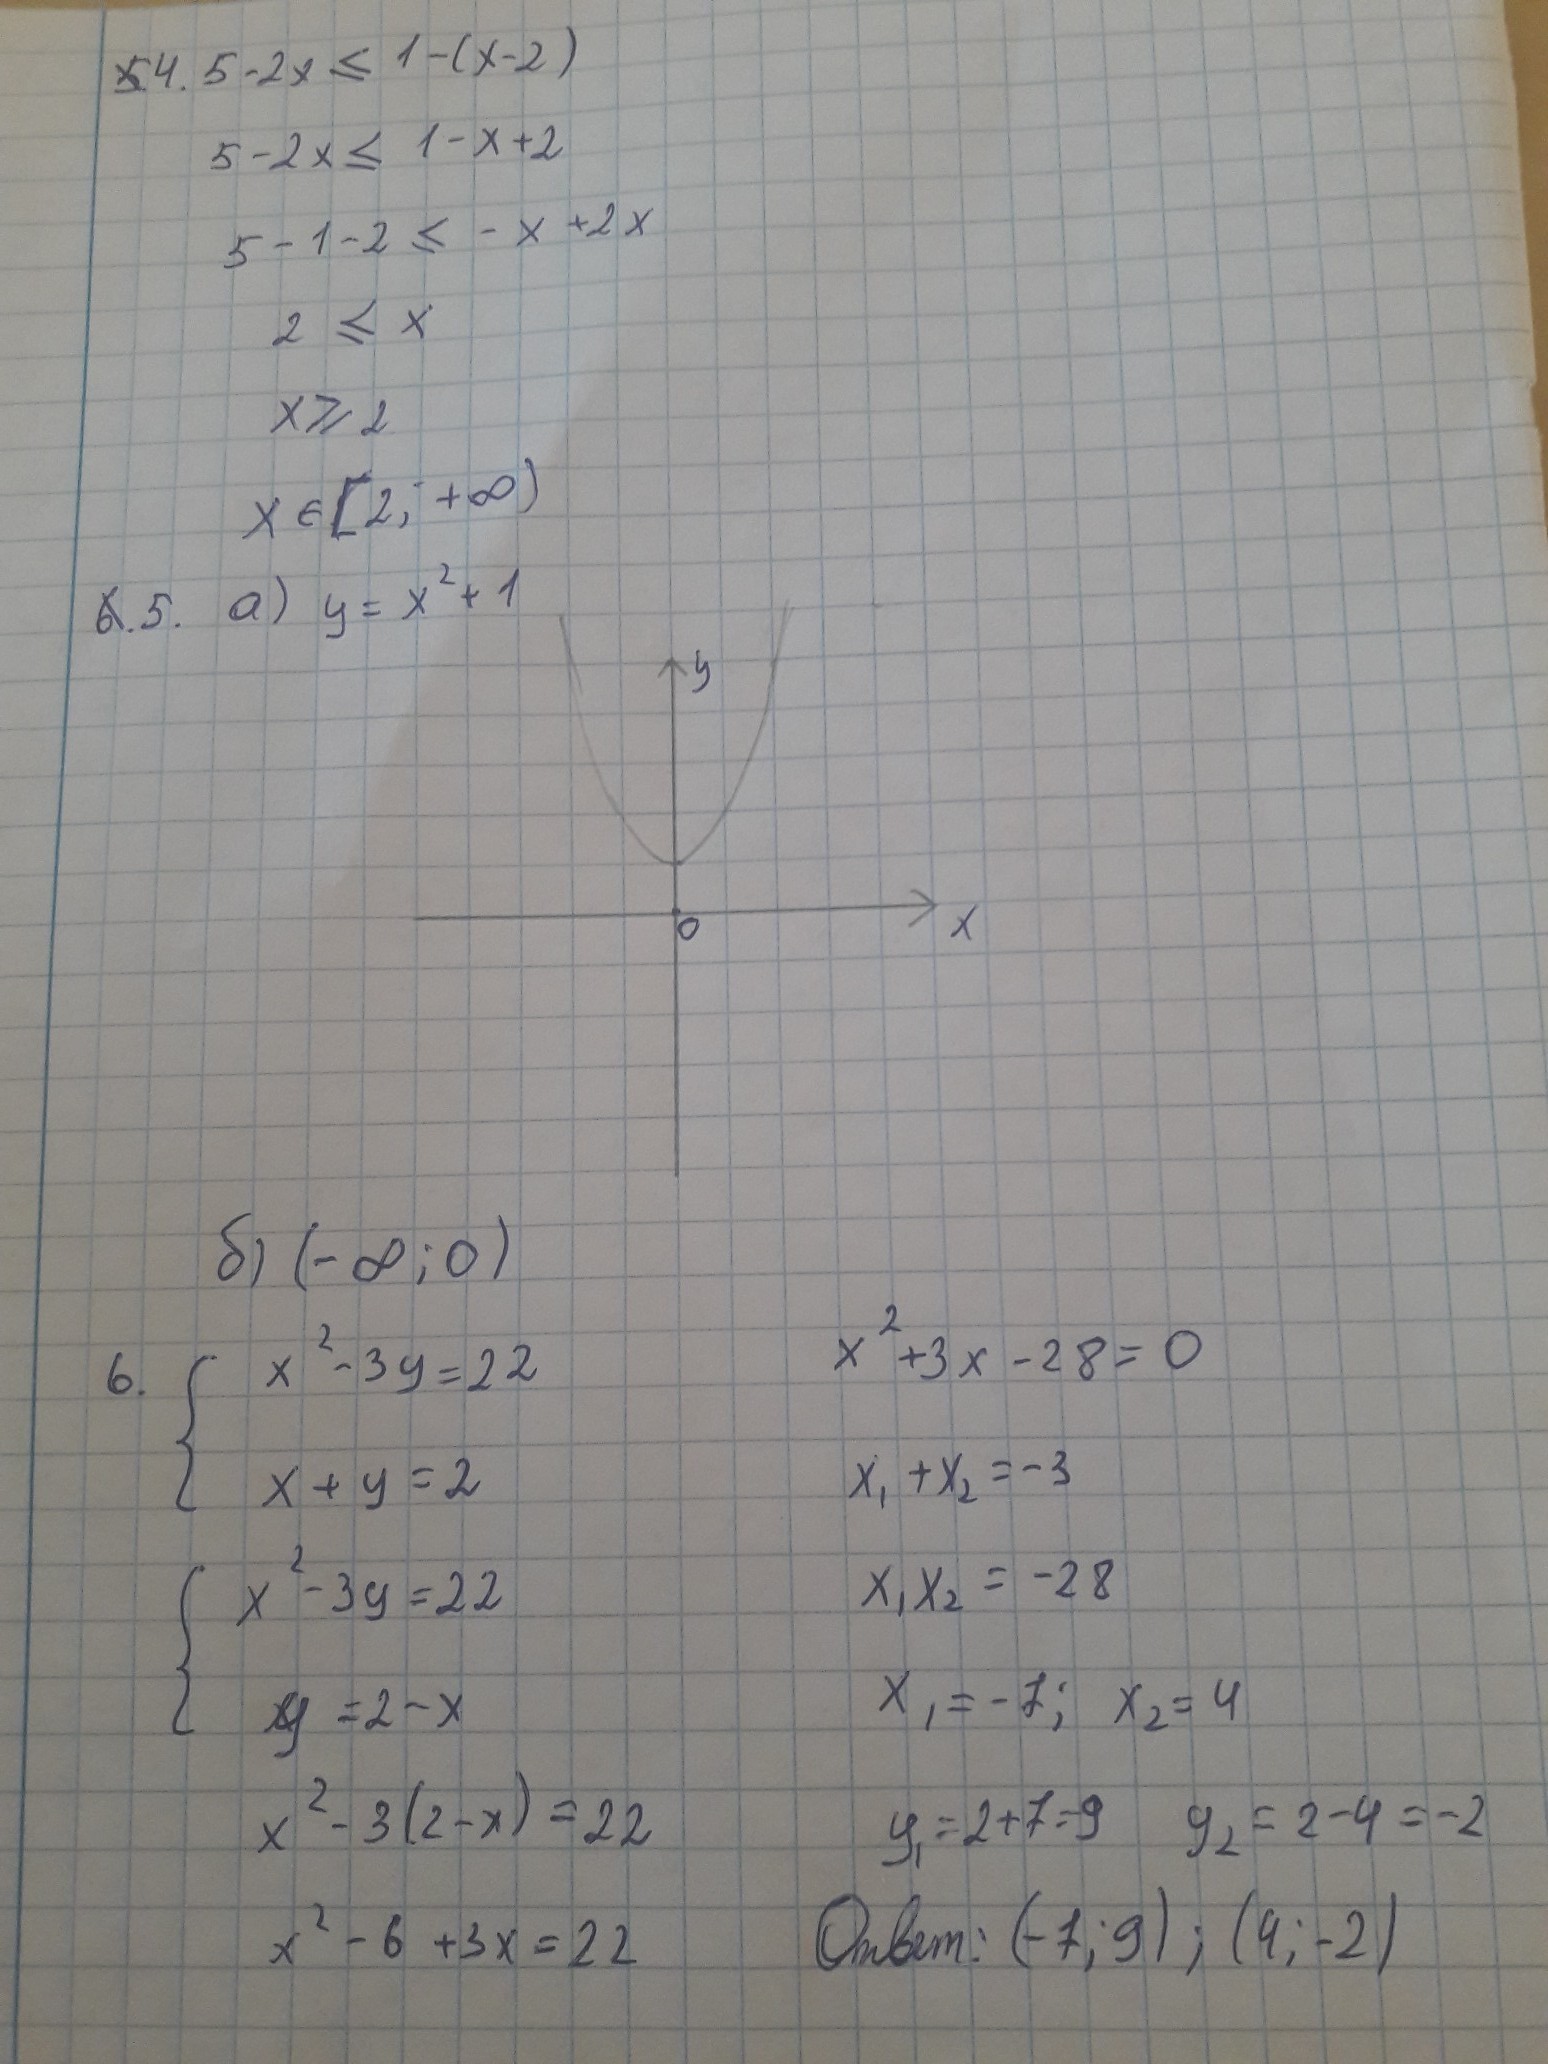 4. 5-2x ≤ 1-(x-2)
5-2x ≤ 1-x+2
5-1-2 ≤ -x+2x
2 ≤ x
x ≥ 2
x ∈ [2; +∞)
5. а) y = x² + 1
y
0
x
б) (-∞; 0)
6. { x² - 3y = 22
x + y = 2
{ x² - 3y = 22
y = 2 - x
x² - 3(2-x) = 22
x² - 6 + 3x = 22
x² + 3x - 28 = 0
x₁ + x₂ = -3
x₁x₂ = -28
x₁ = -7; x₂ = 4
y₁ = 2+7=9 y₂ = 2-4 = -2
Ответ: (-7; 9); (4; -2)